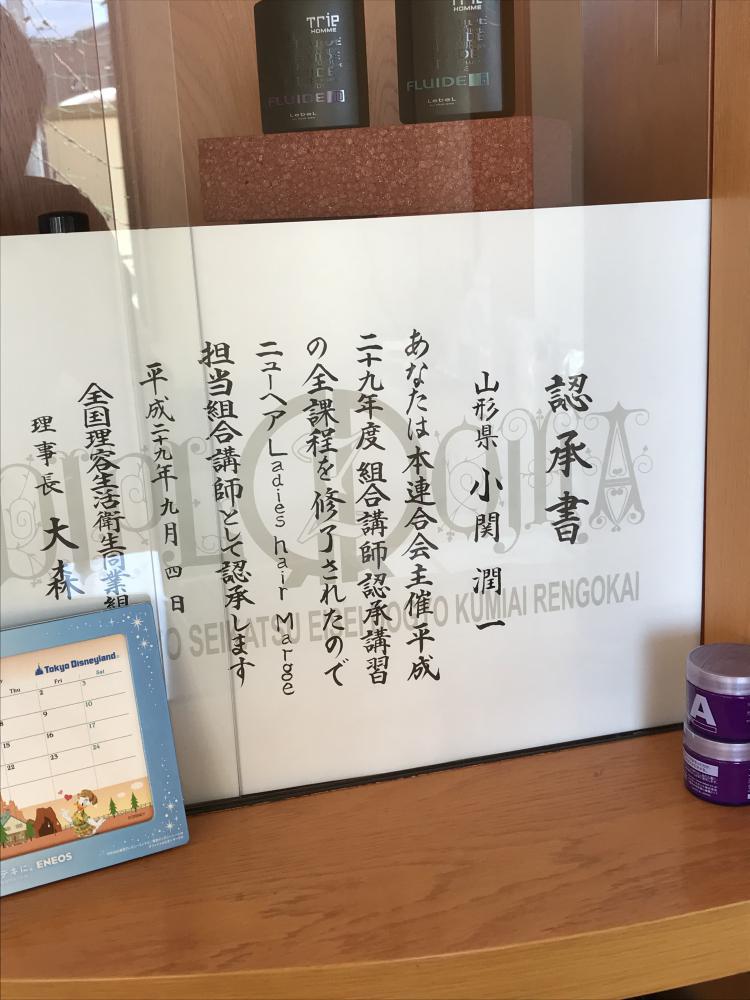 Trie
HOMME
FLUIDE
LebeL
Trie
HOMME
FLUIDE
LebeL
認承書
山形県 小関 潤一
あなたは本連合会主催平成
二十九年度 組合講師認承講習
の全課程を修了されたので
ニューヘア Ladies hair Marge
担当組合講師として認承します
平成二十九年 九月 四 日
全国理容生活衛生同業組
理事長 大森
DIPLOMA
SEIKATSU EISEI DOGYO KUMIAI RENGOKAI
Tokyo Disneyland
Thu Fri Sat
2 3
8 9 10
15 16 17
22 23 24
ENEOS
A